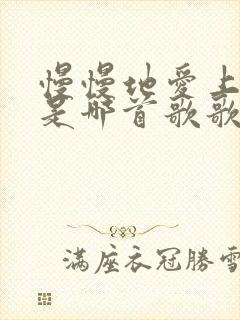 慢慢地愛上
是哪首歌歌
滿座衣冠勝雪